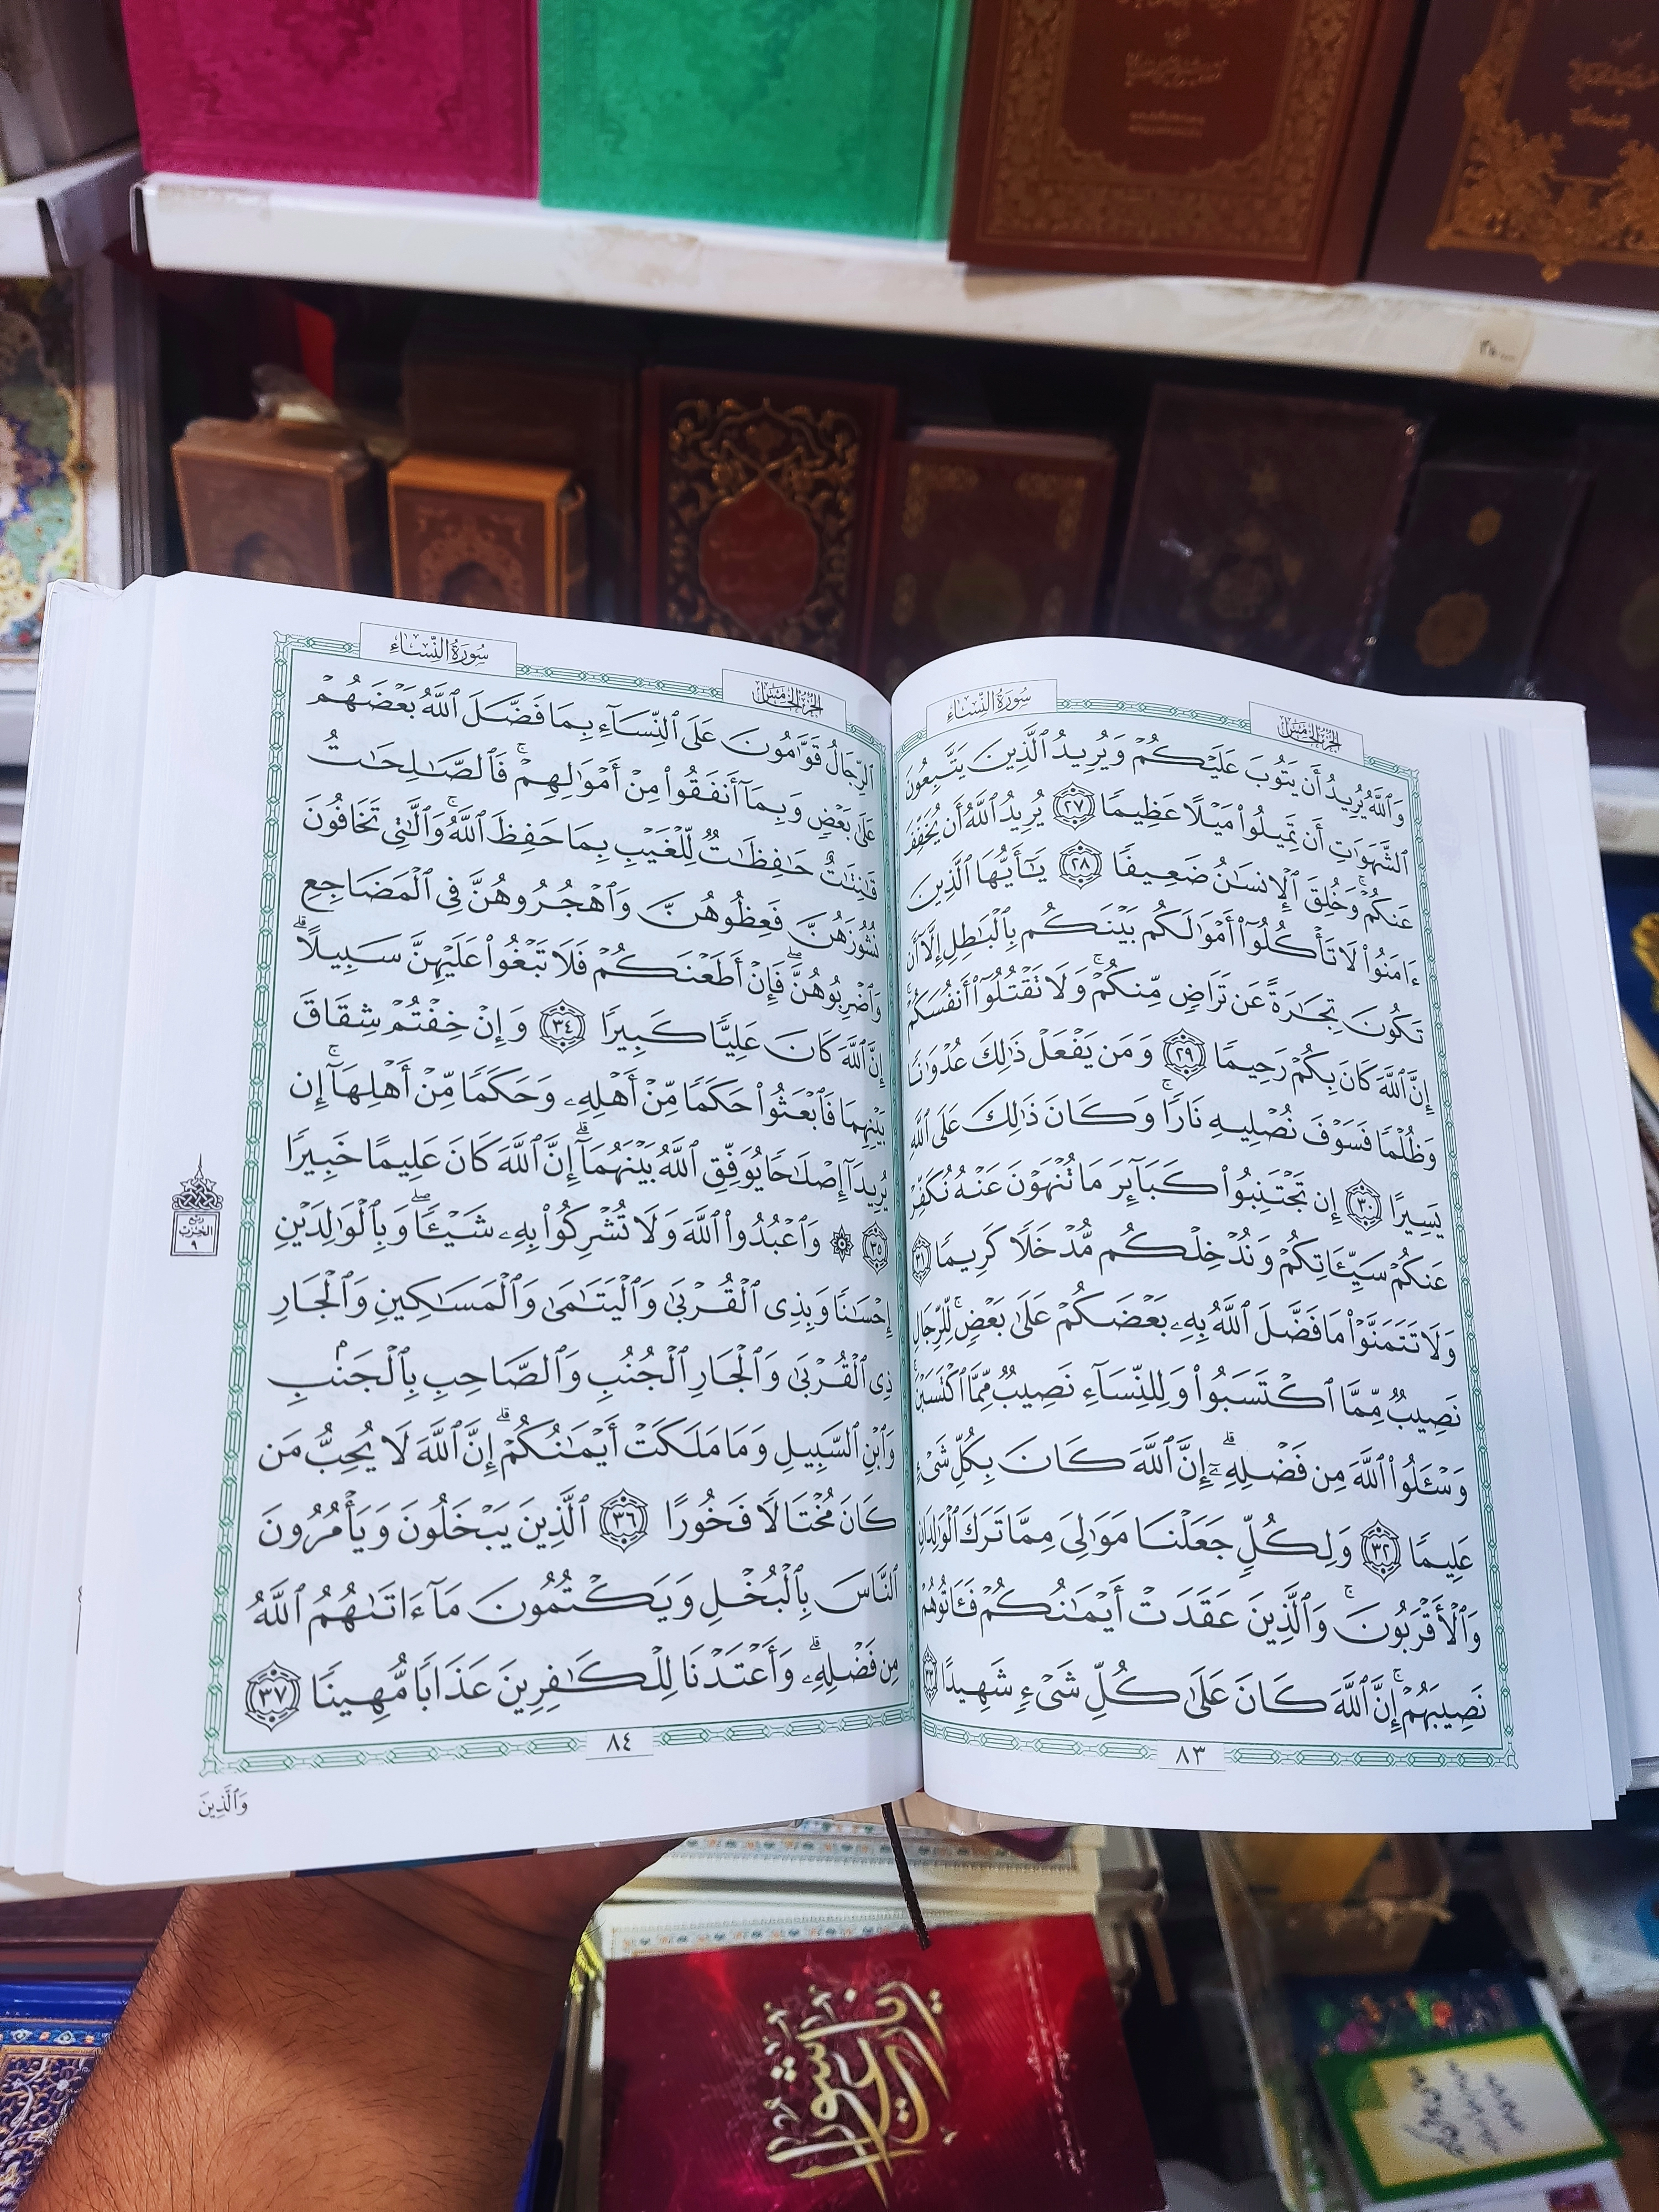 سُورَةُ النِّسَاء
الجُزءُ الخَامِسُ
وَٱللَّهُ يُرِيدُ أَن يَتُوبَ عَلَيۡكُمۡ وَيُرِيدُ ٱلَّذِينَ يَتَّبِعُونَ
ٱلشَّهَوَٰتِ أَن تَمِيلُواْ مَيۡلًا عَظِيمٗا ٢٧ يُرِيدُ ٱللَّهُ أَن يُخَفِّفَ
عَنكُمۡۚ وَخُلِقَ ٱلۡإِنسَٰنُ ضَعِيفٗا ٢٨ يَٰٓأَيُّهَا ٱلَّذِينَ
ءَامَنُواْ لَا تَأۡكُلُوٓاْ أَمۡوَٰلَكُم بَيۡنَكُم بِٱلۡبَٰطِلِ إِلَّآ أَن
تَكُونَ تِجَٰرَةً عَن تَرَاضٖ مِّنكُمۡۚ وَلَا تَقۡتُلُوٓاْ أَنفُسَكُمۡۚ
إِنَّ ٱللَّهَ كَانَ بِكُمۡ رَحِيمٗا ٢٩ وَمَن يَفۡعَلۡ ذَٰلِكَ عُدۡوَٰنٗا
وَظُلۡمٗا فَسَوۡفَ نُصۡلِيهِ نَارٗاۚ وَكَانَ ذَٰلِكَ عَلَى ٱللَّهِ
يَسِيرًا ٣٠ إِن تَجۡتَنِبُواْ كَبَآئِرَ مَا تُنۡهَوۡنَ عَنۡهُ نُكَفِّرۡ
عَنكُمۡ سَيِّـَٔاتِكُمۡ وَنُدۡخِلۡكُم مُّدۡخَلٗا كَرِيمٗا ٣١
وَلَا تَتَمَنَّوۡاْ مَا فَضَّلَ ٱللَّهُ بِهِۦ بَعۡضَكُمۡ عَلَىٰ بَعۡضٖۚ لِّلرِّجَالِ
نَصِيبٞ مِّمَّا ٱكۡتَسَبُواْۖ وَلِلنِّسَآءِ نَصِيبٞ مِّمَّا ٱكۡتَسَبۡنَۚ
وَسۡـَٔلُواْ ٱللَّهَ مِن فَضۡلِهِۦٓۗ إِنَّ ٱللَّهَ كَانَ بِكُلِّ شَيۡءٍ
عَلِيمٗا ٣٢ وَلِكُلّٖ جَعَلۡنَا مَوَٰلِيَ مِمَّا تَرَكَ ٱلۡوَٰلِدَانِ
وَٱلۡأَقۡرَبُونَۚ وَٱلَّذِينَ عَقَدَتۡ أَيۡمَٰنُكُمۡ فَـَٔاتُوهُمۡ
نَصِيبَهُمۡۚ إِنَّ ٱللَّهَ كَانَ عَلَىٰ كُلِّ شَيۡءٖ شَهِيدًا ٣٣
٨٣
سُورَةُ النِّسَاء
الجُزءُ الخَامِسُ
ٱلرِّجَالُ قَوَّٰمُونَ عَلَى ٱلنِّسَآءِ بِمَا فَضَّلَ ٱللَّهُ بَعۡضَهُمۡ
عَلَىٰ بَعۡضٖ وَبِمَآ أَنفَقُواْ مِنۡ أَمۡوَٰلِهِمۡۚ فَٱلصَّٰلِحَٰتُ
قَٰنِتَٰتٌ حَٰفِظَٰتٞ لِّلۡغَيۡبِ بِمَا حَفِظَ ٱللَّهُۚ وَٱلَّٰتِي تَخَافُونَ
نُشُوزَهُنَّ فَعِظُوهُنَّ وَٱهۡجُرُوهُنَّ فِي ٱلۡمَضَاجِعِ
وَٱضۡرِبُوهُنَّۖ فَإِنۡ أَطَعۡنَكُمۡ فَلَا تَبۡغُواْ عَلَيۡهِنَّ سَبِيلًاۗ
إِنَّ ٱللَّهَ كَانَ عَلِيّٗا كَبِيرٗا ٣٤ وَإِنۡ خِفۡتُمۡ شِقَاقَ
بَيۡنِهِمَا فَٱبۡعَثُواْ حَكَمٗا مِّنۡ أَهۡلِهِۦ وَحَكَمٗا مِّنۡ أَهۡلِهَآۚ إِن
يُرِيدَآ إِصۡلَٰحٗا يُوَفِّقِ ٱللَّهُ بَيۡنَهُمَآۗ إِنَّ ٱللَّهَ كَانَ عَلِيمًا خَبِيرٗا
٣٥ ۞ وَٱعۡبُدُواْ ٱللَّهَ وَلَا تُشۡرِكُواْ بِهِۦ شَيۡـٔٗاۖ وَبِٱلۡوَٰلِدَيۡنِ
إِحۡسَٰنٗا وَبِذِي ٱلۡقُرۡبَىٰ وَٱلۡيَتَٰمَىٰ وَٱلۡمَسَٰكِينِ وَٱلۡجَارِ
ذِي ٱلۡقُرۡبَىٰ وَٱلۡجَارِ ٱلۡجُنُبِ وَٱلصَّاحِبِ بِٱلۡجَنۢبِ
وَٱبۡنِ ٱلسَّبِيلِ وَمَا مَلَكَتۡ أَيۡمَٰنُكُمۡۗ إِنَّ ٱللَّهَ لَا يُحِبُّ مَن
كَانَ مُخۡتَالٗا فَخُورًا ٣٦ ٱلَّذِينَ يَبۡخَلُونَ وَيَأۡمُرُونَ
ٱلنَّاسَ بِٱلۡبُخۡلِ وَيَكۡتُمُونَ مَآ ءَاتَىٰهُمُ ٱللَّهُ
مِن فَضۡلِهِۦۗ وَأَعۡتَدۡنَا لِلۡكَٰفِرِينَ عَذَابٗا مُّهِينٗا ٣٧
ربع
الحزب
٩
٨٤
وَٱلَّذِينَ
زیارت عاشورا